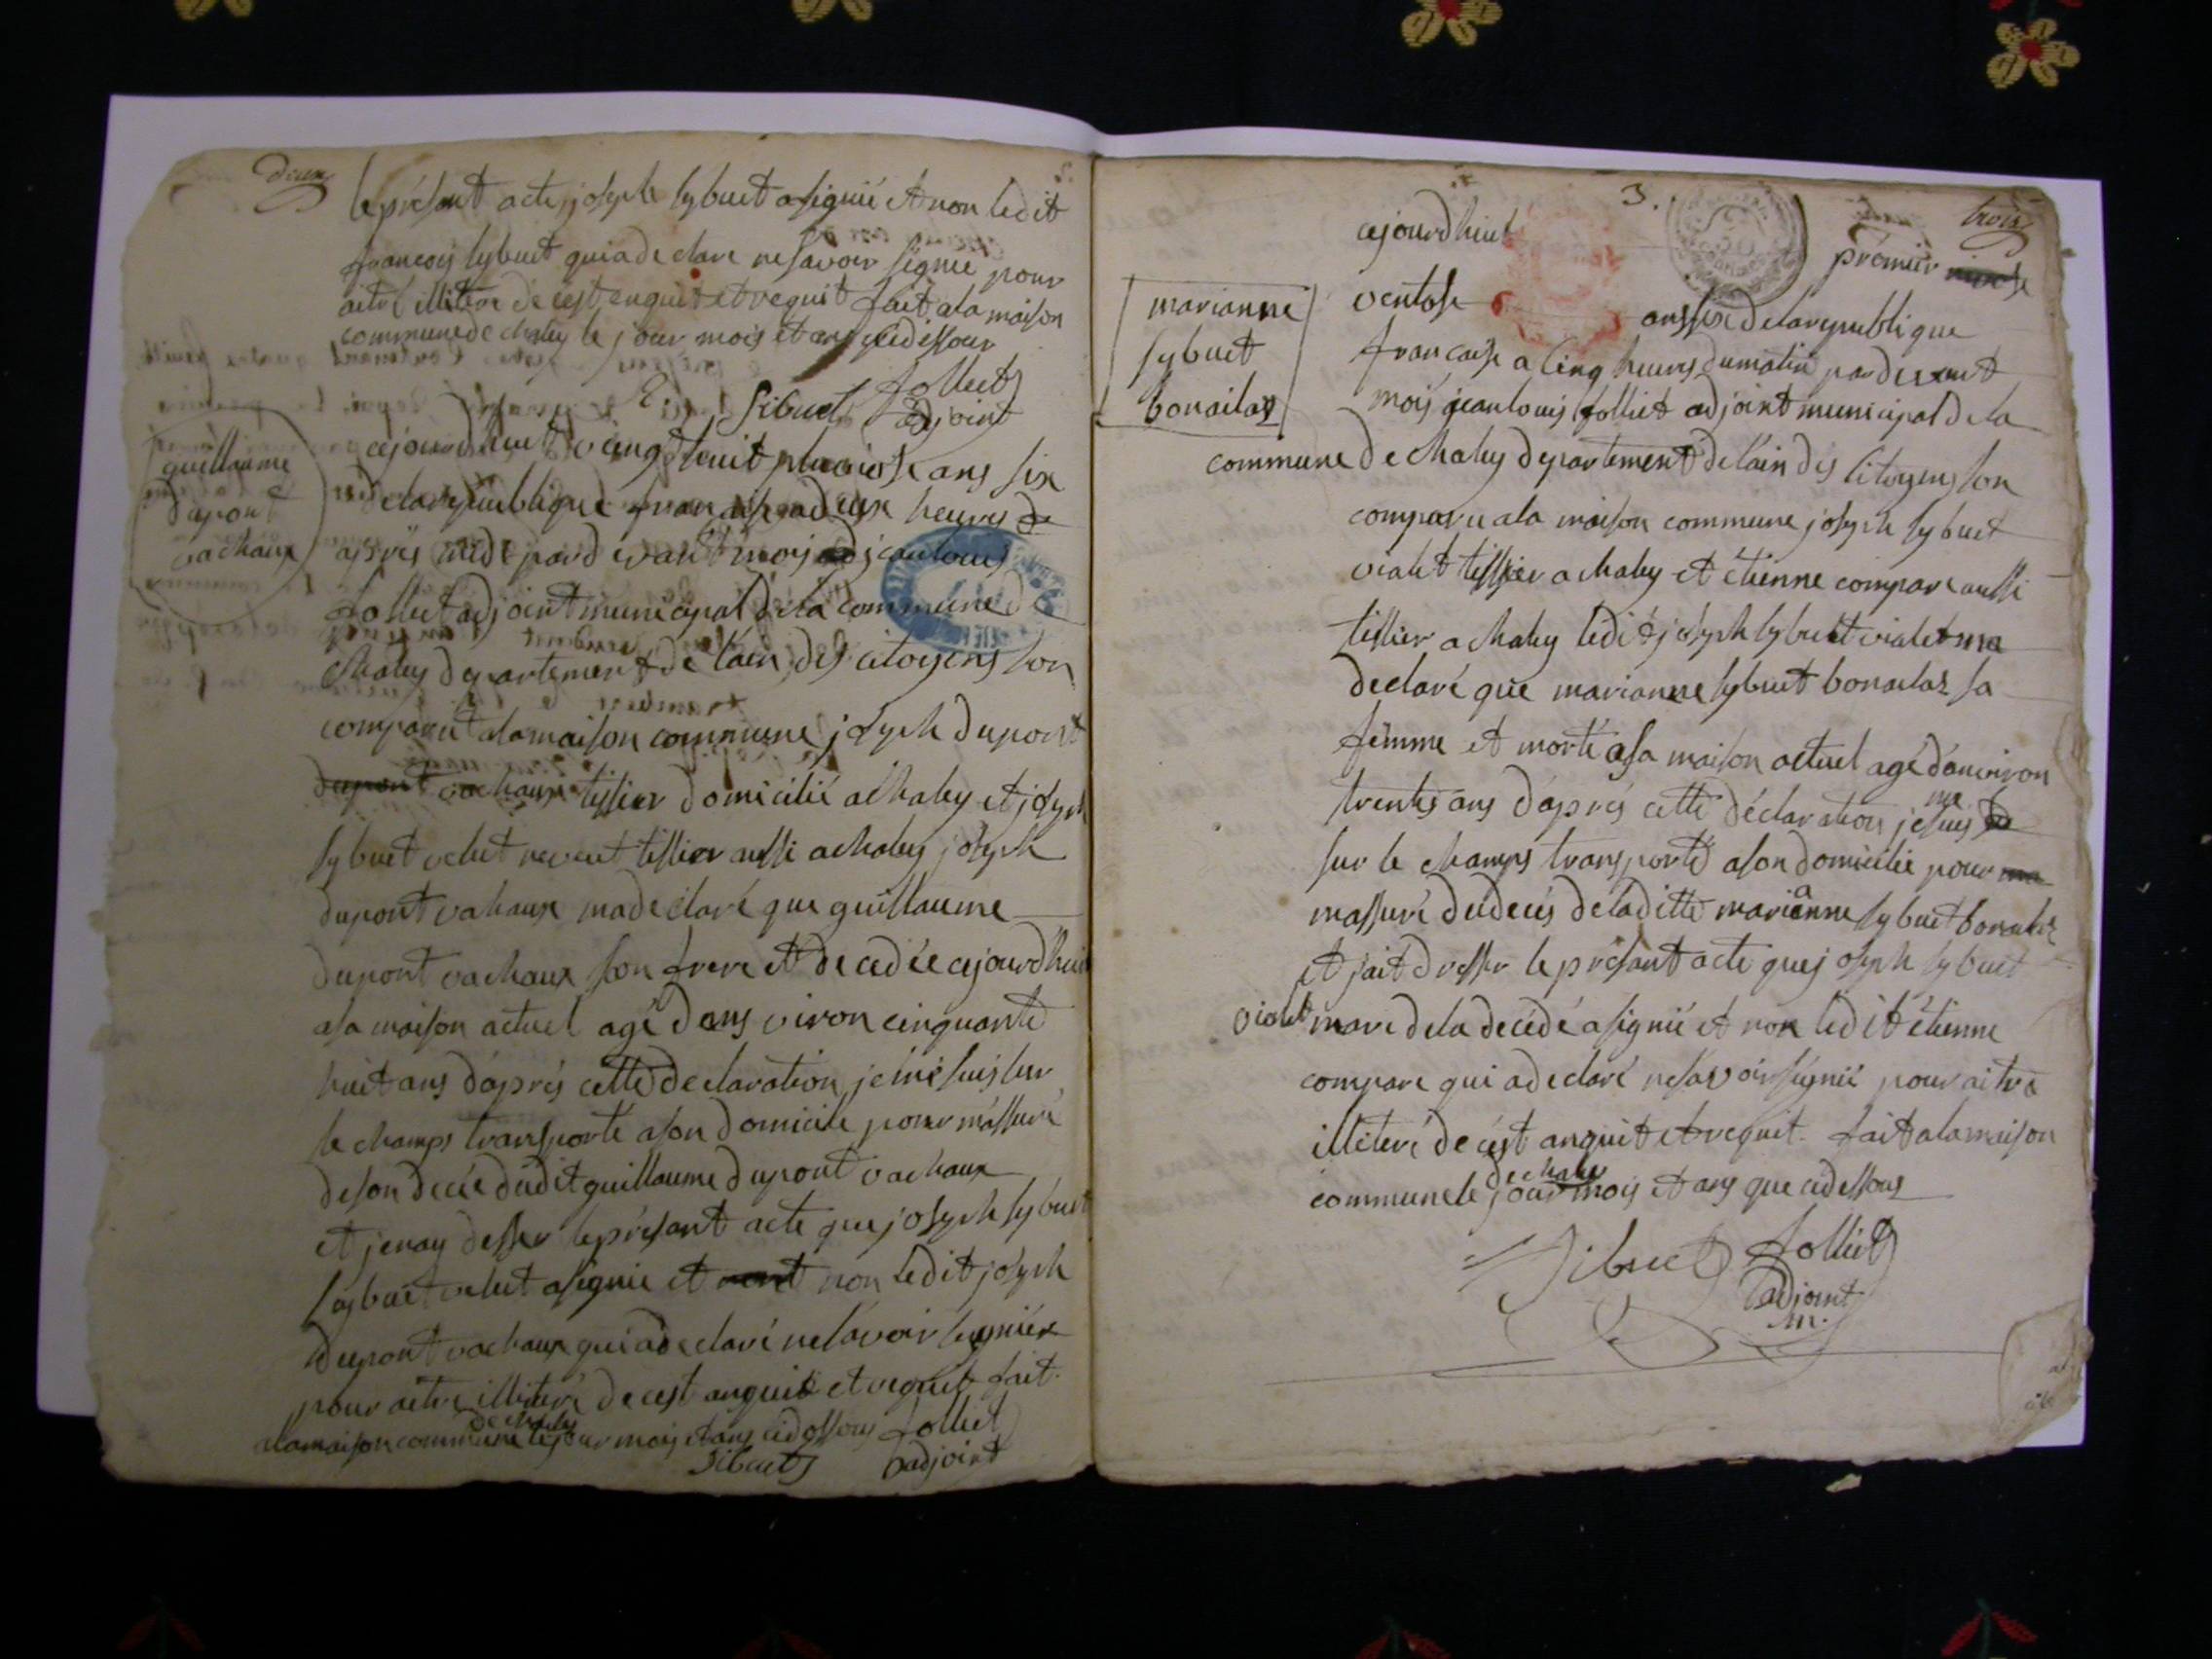 deux
le présant acte joseph sybuet asignié et non ledit
francois sybuet quia declare nesavoir signié pour
aitre illitere de cest enquit et requit fait ala maison
commune de chaley le jour mois et ans que cidessour
Sibuet folliet
adjoint
guillaume
dupont
vachaux
cejourdhuit vingt huit pluviose ans six
delarepublique francaise adeux heures de
apres midi pardevant moij jeanlouis
folliet adjoint municipal dela commune de
Chaley departement de lain des citoyens son
comparut alamaison commune joseph dupont
dupont vachaux tissier domicilié achaley et joseph
sybuet velut neveut tissier aussi achaley joseph
dupont vahaux madeclaré que guillaume
dupont vachaux son frere et decedée cejourdhuit
asa maison actuel agé dans viron cinquante
huit ans dapres cette declaration jeme suis sur
le champs transporté ason domicile pour massuré
deson decée dudit guillaume dupont vachaux
et jenay desser leprésant acte que joseph sybuet
sybuet velut asignie et non ledit joseph
dupont vachaux quiadeclaré nesavoir signiér
pour aitre illiteré de cest anquit et requit fait
de chaley
alamaison commune lejour mois et ans cidessous folliet
Sibuet adjoint
3.
trois
cejourdhuit premier
ventose ans six delarepublique
marianne
sybuet
bonailaz
francaise a cinq heures dumatin pardevant
moij jeanlouis folliet adjoint municipal dela
commune de chaley departement delain des citoyens son
comparu ala maison commune joseph sybuet
vialet tissier achaley et étienne compare aussi
tissier achaley ledit joseph sybuet vialet ma
declaré que marianne sybuet bonailaz sa
femme et morté asa maison actuel agé danviron
trentes ans daprés cette déclaration jesuis
me
sur le champs transporté ason domicilie pour
massuré dudecés deladitte marianne sybuet bonailaz
et fait dresser leprésant acte quejoseph sybuet
violet mare dela decédé asignié et non ledit étienne
compare qui adeclaré nesavoirsignié pour aitre
illiteré de cest anquit et requit. fait alamaison
de chaley
commune le jour mois et ans que cidessous
Sibuet folliet
adjoint
m.